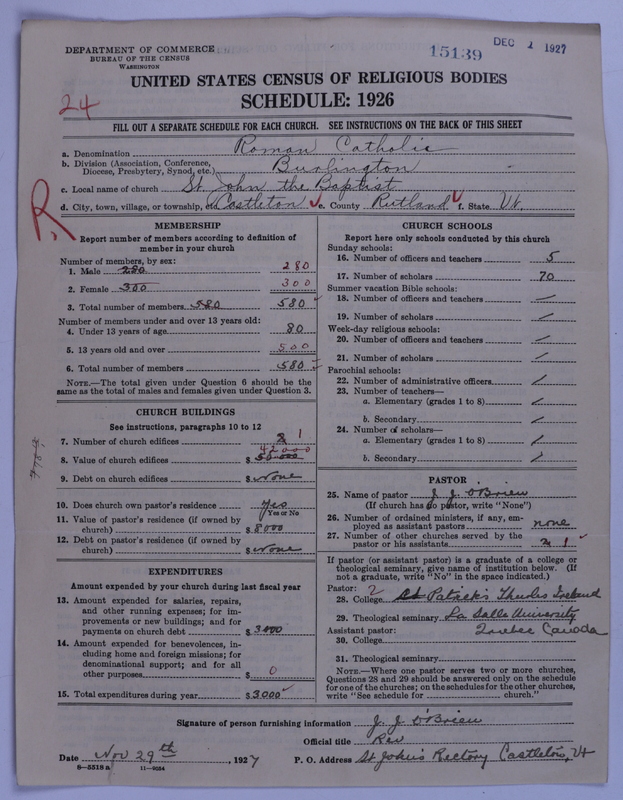 DEPARTMENT OF COMMERCE
BUREAU OF THE CENSUS
WASHINGTON
15139
DEC 1 1927
UNITED STATES CENSUS OF RELIGIOUS BODIES
SCHEDULE: 1926
24
FILL OUT A SEPARATE SCHEDULE FOR EACH CHURCH. SEE INSTRUCTIONS ON THE BACK OF THIS SHEET
a. Denomination Roman Catholic
b. Division (Association, Conference, Diocese, Presbytery, Synod, etc.) Burlington
c. Local name of church St. John the Baptist
d. City, town, village, or township, Castleton e. County Rutland f. State Vt.
R.
MEMBERSHIP
Report number of members according to definition of
member in your church
Number of members, by sex:
1. Male 280 280
2. Female 300 300
3. Total number of members 580 580
Number of members under and over 13 years old:
4. Under 13 years of age 80
5. 13 years old and over 500
6. Total number of members 580
NOTE.—The total given under Question 6 should be
same as the total of males and females given under Question 3.
CHURCH BUILDINGS
See instructions, paragraphs 10 to 12
7. Number of church edifices 2 1
42000
8. Value of church edifices $ 50.000
9. Debt on church edifices $ None
10. Does church own pastor's residence Yes
Yes or No
11. Value of pastor's residence (if owned by
church) $ 8000
12. Debt on pastor's residence (if owned by
church) $ None
EXPENDITURES
Amount expended by your church during last fiscal year
13. Amount expended for salaries, repairs,
and other running expenses; for im-
provements or new buildings; and for
payments on church debt $ 3000
14. Amount expended for benevolences, in-
cluding home and foreign missions; for
denominational support; and for all
other purposes $ 0
15. Total expenditures during year $ 3000
CHURCH SCHOOLS
Report here only schools conducted by this church
Sunday schools:
16. Number of officers and teachers 5
17. Number of scholars 70
Summer vacation Bible schools:
18. Number of officers and teachers
19. Number of scholars
Week-day religious schools:
20. Number of officers and teachers
21. Number of scholars
Parochial schools:
22. Number of administrative officers
23. Number of teachers—
a. Elementary (grades 1 to 8)
b. Secondary
24. Number of scholars—
a. Elementary (grades 1 to 8)
b. Secondary
PASTOR
25. Name of pastor J. J. O'Brien
(If church has no pastor, write "None")
26. Number of ordained ministers, if any, em-
ployed as assistant pastors none
27. Number of other churches served by the
pastor or his assistants 1
If pastor (or assistant pastor) is a graduate of a college or
theological seminary, give name of institution below. (If
not a graduate, write "No" in the space indicated.)
Pastor: 2
28. College St Patrick's Thurles Ireland
29. Theological seminary La Salle University
Assistant pastor: Quebec Canada
30. College
31. Theological seminary
NOTE.—Where one pastor serves two or more churches,
Questions 28 and 29 should be answered only on the schedule
for one of the churches; on the schedules for the other churches,
write "See schedule for church."
Signature of person furnishing information J. J. O'Brien
Official title Rev
Date Nov 29th, 1927 P. O. Address St John's Rectory Castleton, Vt
8—5518 a 11—9554